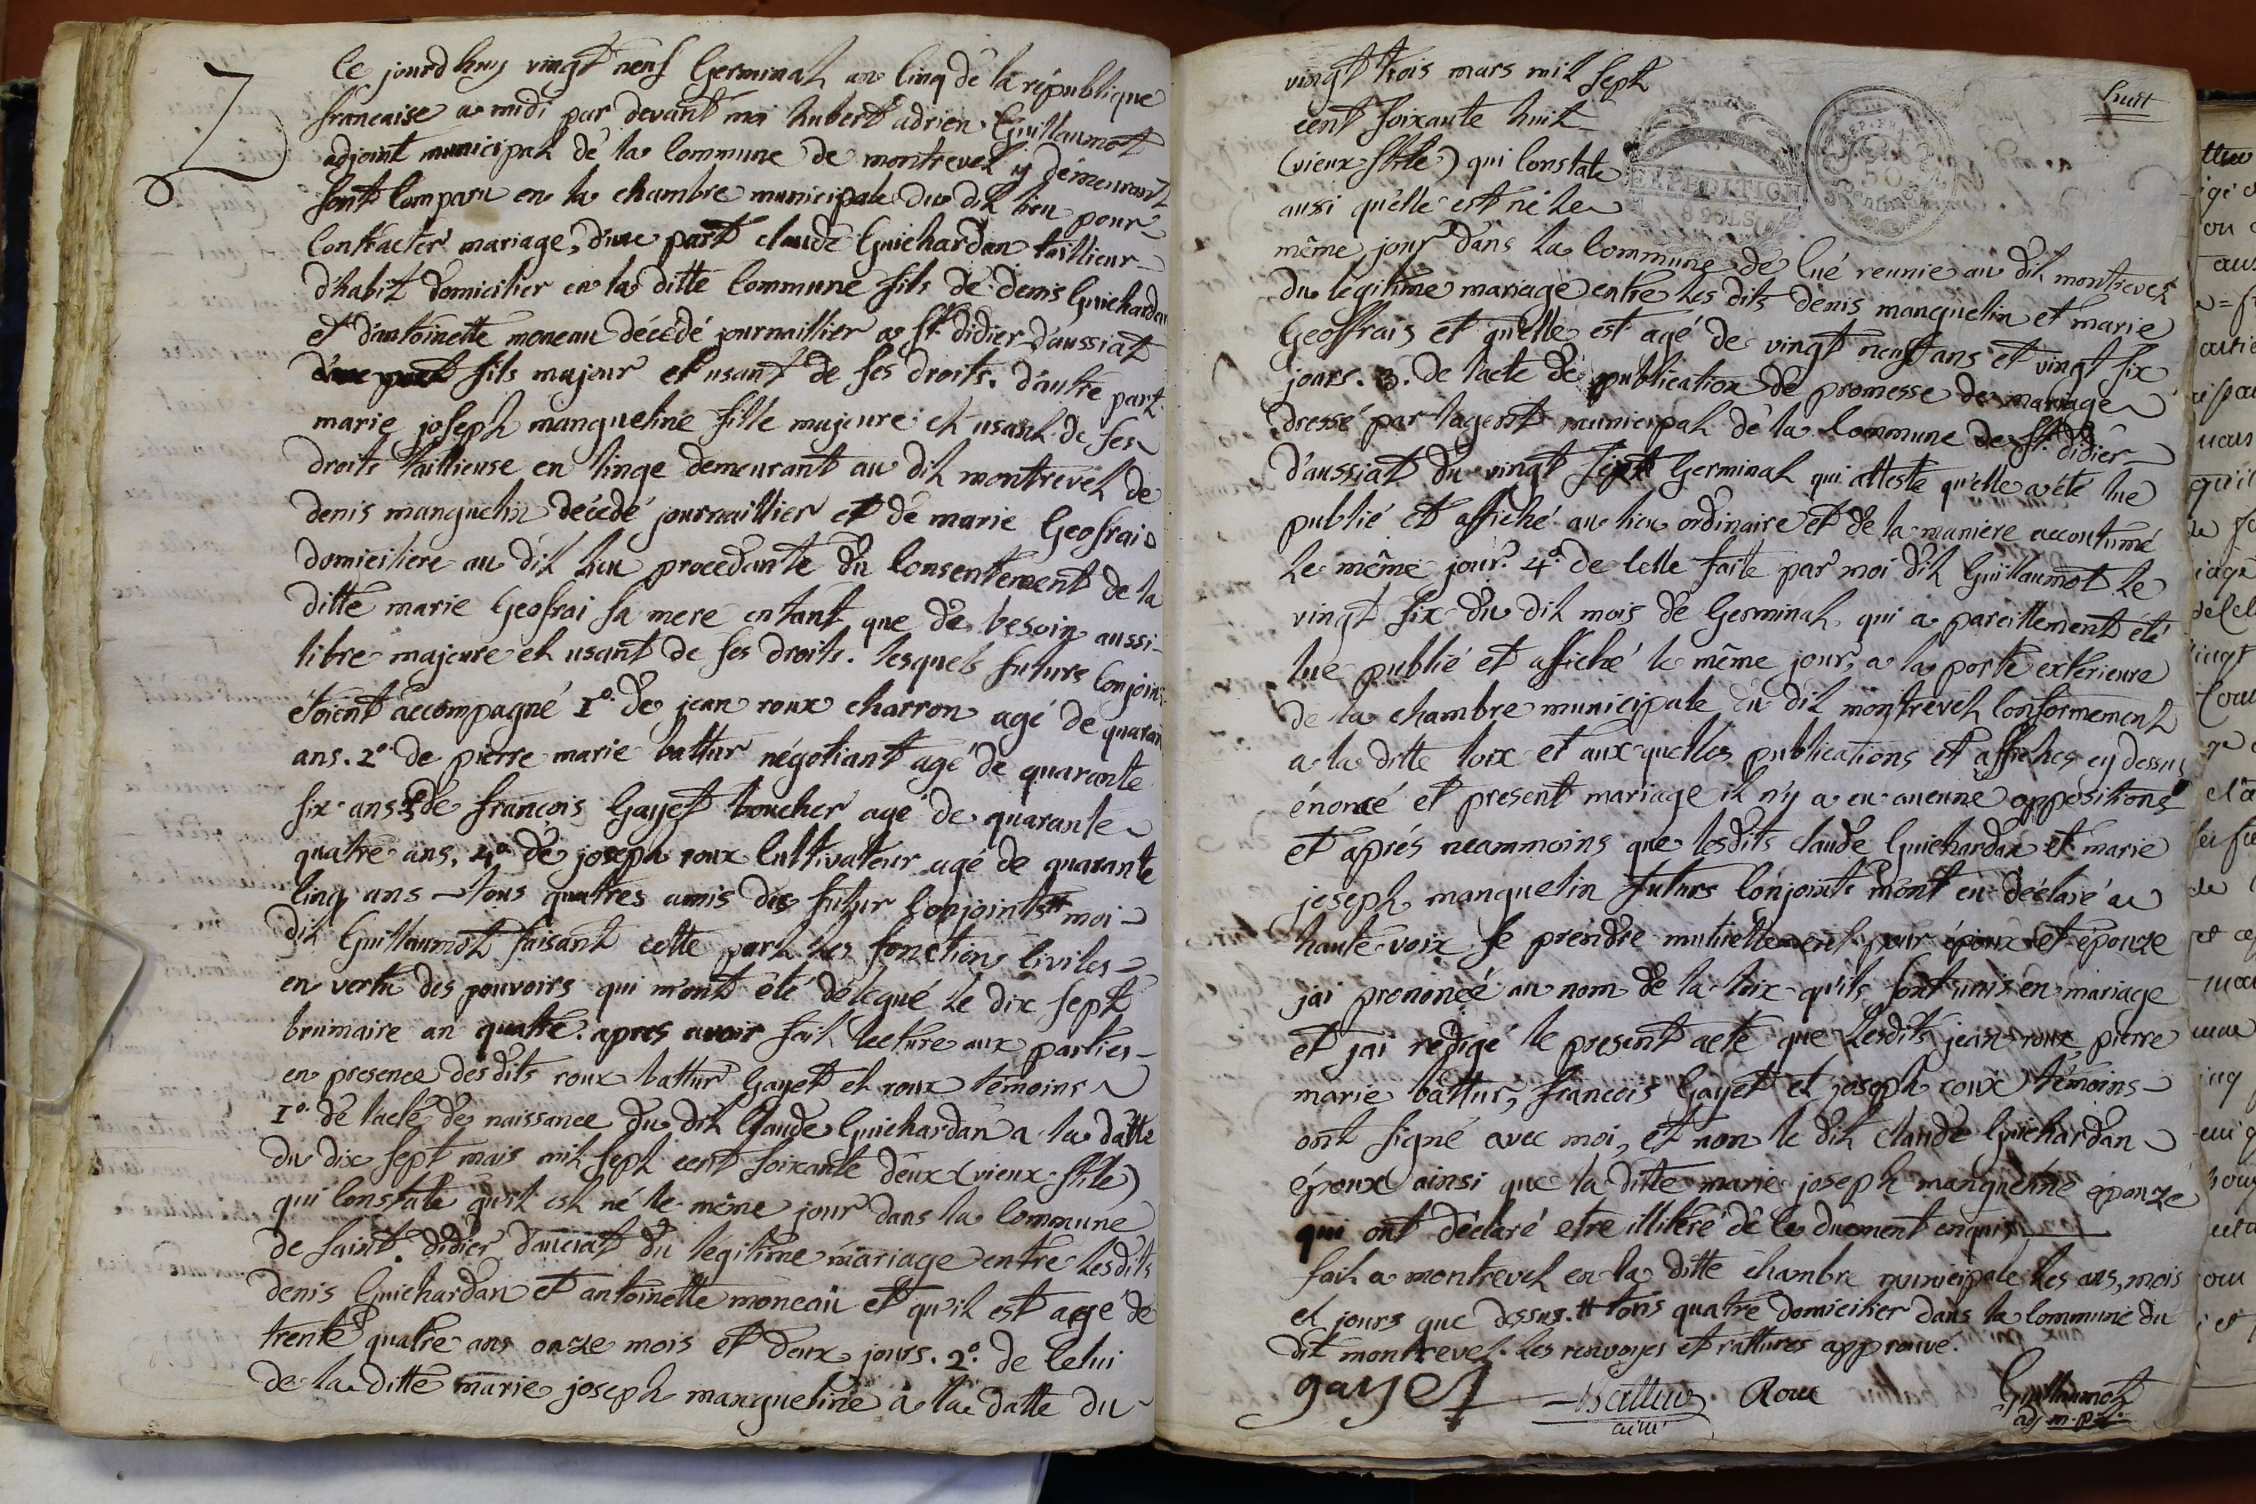 Ce jourdhuy vingt neuf Germinal an Cinq de la république
francaise a midi par devant moi hubert adrien Guillaumot
adjoint municipal de la Commune de montrevel y demeurant
sont Comparu en la chambre municipale du dit lieu pour
Contracter mariage, d'une part claude Guichardan taillieur
d'habit domicilier en la ditte Commune fils de denis Guichardan
et d'antoinette moneau décedé journaillier a St didier d'aussiat
fils majour et usant de ses droits. d'autre part
marie joseph mangueline fille majeure et usant de ses
droits taillieuse en linge demeurant au dit montrevel de
denis manguelin décedé journaillier et de marie Geofrai
domiciliere au dit lieu procedante du Consentement de la
ditte marie Geofrai sa mere en tant que de besoin aussi
libre majeure et usant de ses droits. lesquels futurs Conjoins
étoient accompagné 1° de jean roux charron agé de quaran
ans. 2° de pierre marie battur négotiant agé de quarante
six ans 3° de francois Gayet boucher agé de quarante
quatre ans, 4° de joseph roux Cultivateur agé de quarante
Cinq ans tous quatres amis des futur Conjoints # moi
dit Guillaumot faisant cette part les fonctions Civiles
en vertu des pouvoirs qui m'ont été délégué le dix sept
brumaire an quatre. apres avoir fait lecture aux parties
en presence desdits roux battur Gayet et roux témoins
1° de lacte de naissance du dit Claude Guichardan a la datte
du dix sept mais mil sept cent soixante deux (vieux stile)
qui Constate qu'il est né le même jour dans la Commune
de saint didier d'auciat du légitime mariage entre lesdits
denis Guichardan et antoinette moneau et qu'il est agé de
trente quatre ans onze mois et deux jours. 2°. de Celui
de la ditte marie joseph mangueline a la datte du
huit
vingt trois mars mil sept
cent soixante huit
(vieux stile) qui Constate
aussi quelle est né le
EXPEDITION
même jour dans la Commune de Cué reunie au dit montrevel
du légitime mariage entre les dits denis manguelin et marie
Geoffrais et qu'elle est agé de vingt neuf ans et vingt six
jours. 3. de lacte de publication de promesse de mariage
dressé par lagent municipal de la Commune de St didier
d'aussiat du vingt sept Germinal qui atteste qu'elle a été lue
publié et affiché au lieu ordinaire et de la maniere accoutumé
le même jour. 4° de Celle faite par moi dit Guillaumot le
vingt six du dit mois de Germinal qui a pareillement été
lue publié et affiché le même jour, a la porte exterieure
de la chambre municipale du dit montrevel Conformement
a la ditte loix et aux quelles publications et affiches cy dessus
énoncé et present mariage il n'y a eu aucune oppositions
et aprés neammoins que lesdits claude Guichardan et marie
joseph manguelin futurs Conjoints m'ont eu déclaré a
haute voix se prendre mutuellement pour époux et épouze
jai prononcé au nom de la loix qu'ils sont unis en mariage
et jai rédigé le present acte que lesdits jean roux, pierre
marie battur, francois Gayet et joseph roux témoins
ont signé avec moi, et non le dit claude Guichardan
époux ainsi que la ditte marie joseph mangueline épouze
qui ont déclaré etre illiteré de Ce duement enquis
fait a montrevel en la ditte chambre municipale les ans, mois
et jours que dessus. # tous quatre domicilier dans la Commune du
dit montrevel. les renvoyes et rattures approuvé.
gayet Battur Roux Guillaumot
adj m.p.l.